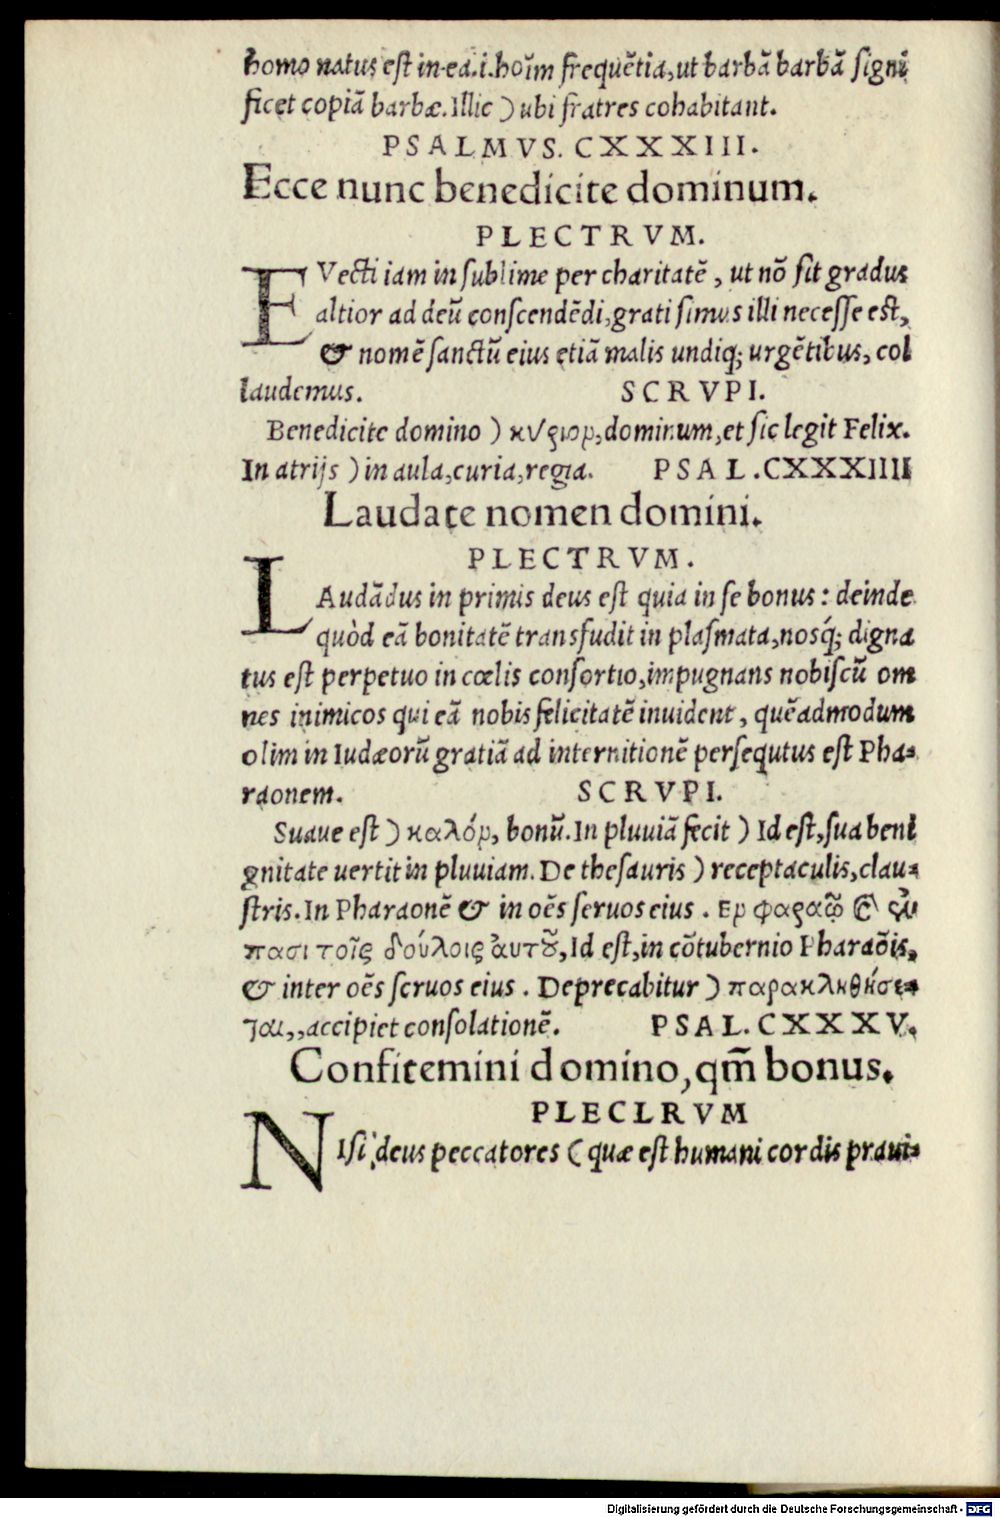 homo natus est in ea.i.hoīm frequētia,ut barbā barbā signi
ficet copiā barbæ.Illic ) ubi fratres cohabitant.
PSALMVS. CXXXIII.
Ecce nunc benedicite dominum.
PLECTRVM.
EVecti iam in sublime per charitatē , ut nō sit gradus
altior ad deū conscendēdi,gratissimus illi necesse est,
& nomē sanctū eius etiā malis undiq; urgētibus, col
laudemus. SCRVPI.
Benedicite domino ) κύριον,dominum,et sic legit Felix.
In atrijs ) in aula,curia,regia. PSAL.CXXXIIII
Laudate nomen domini.
PLECTRVM.
LAudādus in primis deus est quia in se bonus : deinde
quòd eā bonitatē transfudit in plasmata,nosq́; digna
tus est perpetuo in cœlis consortio,impugnans nobiscū om
nes inimicos qui eā nobis felicitatē inuident, quēadmodum
olim in Iudæorū gratiā ad internitionē persequtus est Pha-
raonem. SCRVPI.
Suaue est ) καλόν, bonū.In pluuiā fecit ) Id est,sua beni
gnitate uertit in pluuiam. De thesauris ) receptaculis,clau-
stris.In Pharaonē & in oēs seruos eius . Εν φαραῶ ϗ ἐν
πασι τοῖς δούλοις ἀυτοῦ,Id est,in cōtubernio Pharaōis,
& inter oēs seruos eius . Deprecabitur ) παρακληθήσε-
ται,,accipiet consolationē. PSAL. CXXXV.
Confitemini domino,qm̄ bonus.
PLECLRVM
NIsi deus peccatores ( quæ est humani cordis praui-
Digitalisierung gefördert durch die Deutsche Forschungsgemeinschaft - DFG